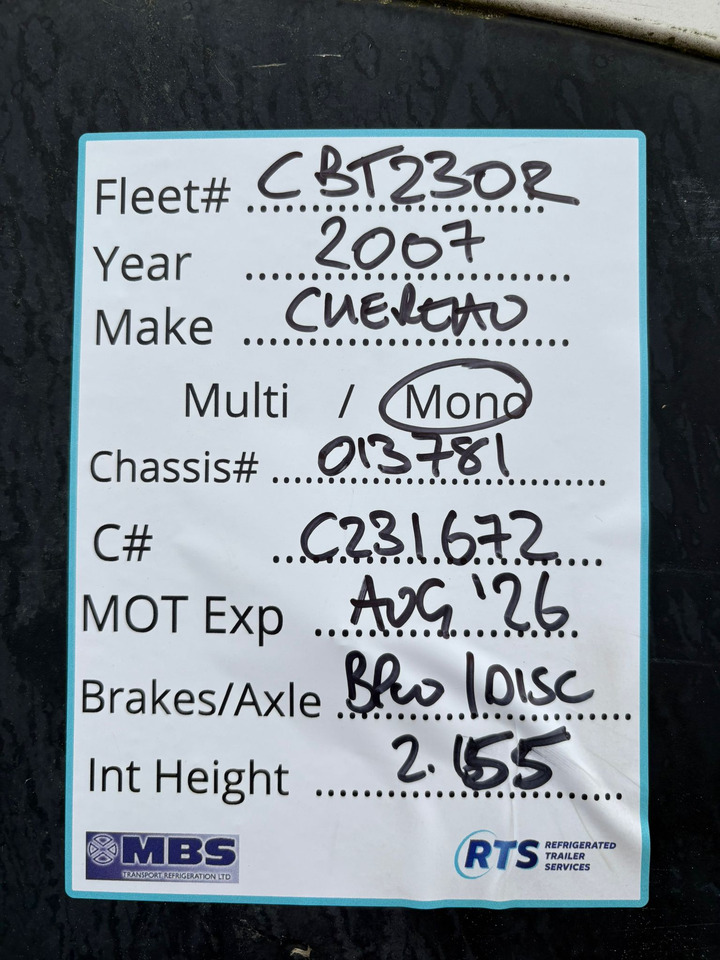 Fleet# CBT230R
Year 2007
Make CHEREAU
Multi / Mono
Chassis# 013781
C# C231672
MOT Exp AUG '26
Brakes/Axle BPW / DISC
Int Height 2.155
MBS
TRANSPORT REFRIGERATION LTD
RTS REFRIGERATED
TRAILER
SERVICES